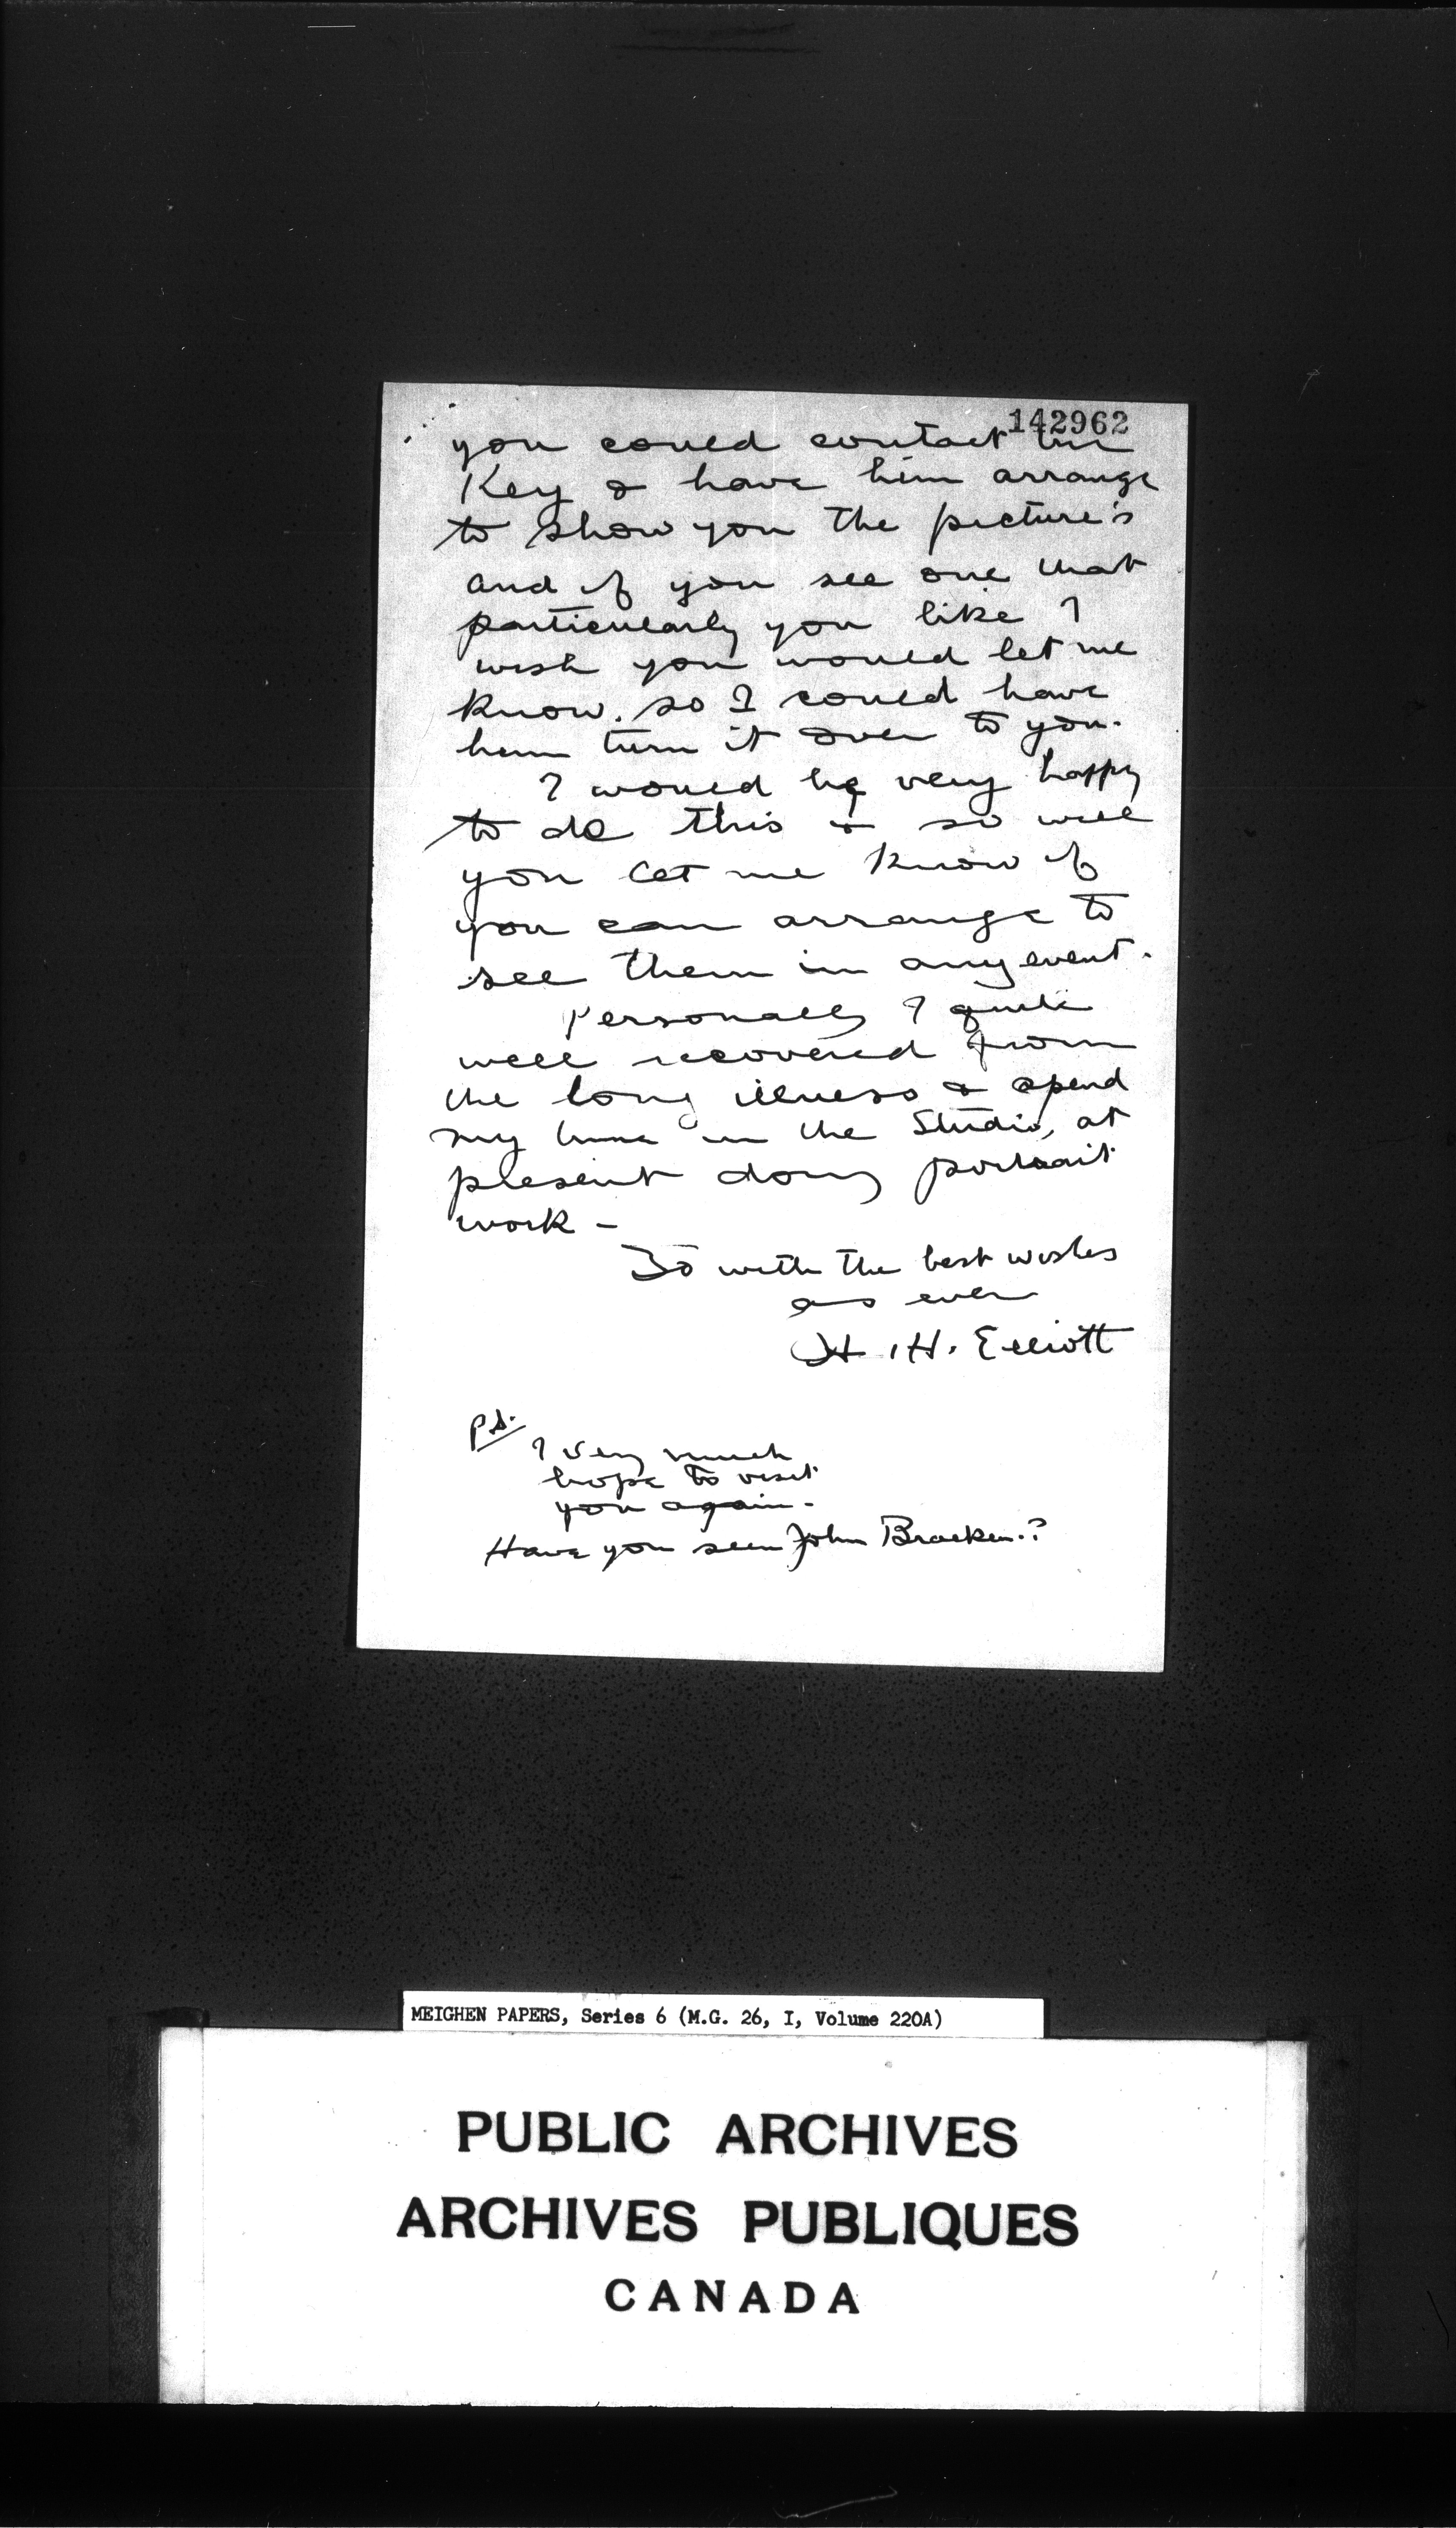 142962
you could contact
Key & have him arrange
to show you the picture's
and if you see one that
particularly you like I
wish you would let me
know. so I could have
him turn it over to you.
I would be very happy
to do this & so will
you let me know if
you can arrange to
see them in any event.
Personally I quite
well recovered from
the long illness & spend
my time in the Studio, at
present doing portrait
work -
So with the best wishes
as ever
H. H. Elliott
P.S.
I very much
hope to visit
you again -
Have you seen John Bracken.?
MEIGHEN PAPERS, Series 6 (M.G. 26, I, Volume 220A)
PUBLIC ARCHIVES
ARCHIVES PUBLIQUES
CANADA